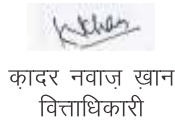 क़ादर नवाज़ ख़ान
वित्ताधिकारी